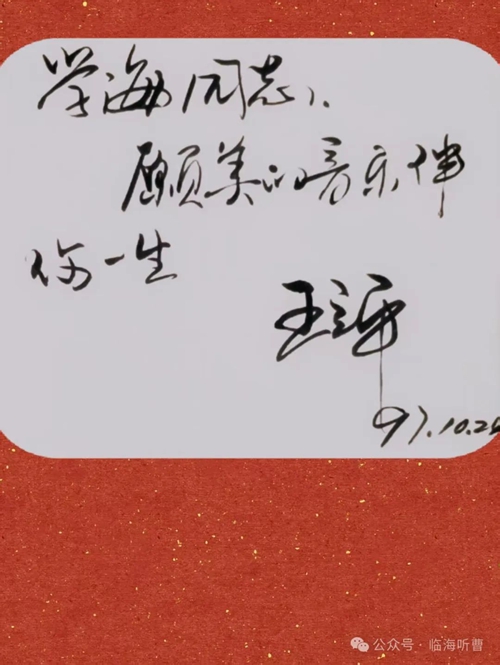 学海同志：
愿美的音乐伴
你一生
王立平
97.10.2
公众号·临海听曹